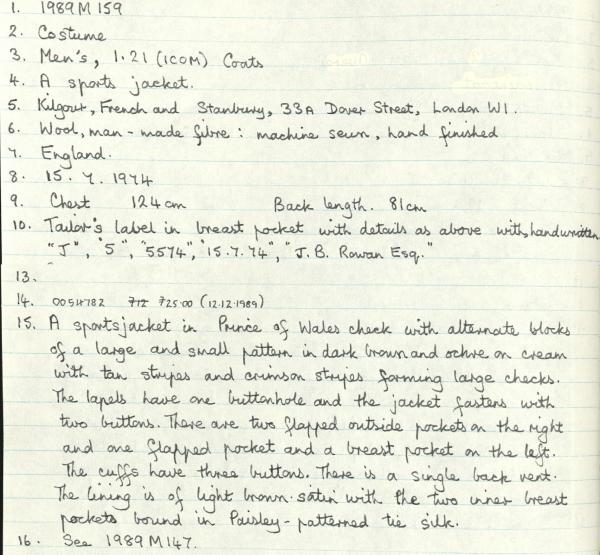 1. 1989 M 159
2. Costume
3. Men's, 1.21 (ICOM) Coats
4. A sports jacket.
5. Kilgour, French and Stanbury, 33A Dover Street, London W1.
6. Wool, man-made fibre : machine sewn, hand finished
7. England.
8. 15. 7. 1974
9. Chest 124cm Back length. 81cm
10. Tailor's label in breast pocket with details as above with, handwritten
"J", "5", "5574", "15.7.74", "J.B. Rowan Esq."
13.
14. 712 725.00 (12.12.1989)
15. A sportsjacket in Prince of Wales check with alternate blocks
of a large and small pattern in dark brown and ochre on cream
with tan stripes and crimson stripes forming large checks.
The lapels have one buttonhole and the jacket fastens with
two buttons. There are two flapped outside pockets on the right
and one flapped pocket and a breast pocket on the left.
The cuffs have three buttons. There is a single back vent.
The lining is of light brown satin with the two inner breast
pockets bound in Paisley-patterned tie silk.
16. See 1989 M147.